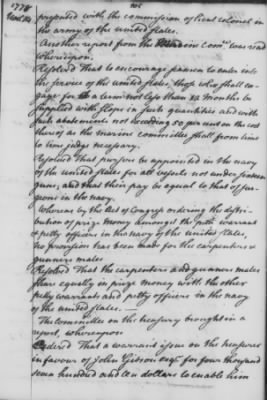 1778
presented with the commission of lieut colonel in
the army of the united states.
Another report from the marine comee. was read
whereupon
Resolved That to encourage seamen to enter into
the service of the united states, those who shall en-
gage for a term not less than 12 months be
supplied with slops in such quantities and with
such abatements not exceeding 50 per cent on the cost
thereof as the marine committee shall from time
to time judge necessary.
Resolved That pursers be appointed in the navy
of the united states for all vessels not under sixteen
guns, and that their pay be equal to that of sur-
geons in the navy.
Whereas by the Act of Congress ordering the distri-
bution of prize money amongst the warrant
& petty officers in the navy of the United States,
no provision has been made for the carpenters &
gunners mates
Resolved That the carpenters and gunners mates
share equally in prize money with the other
petty warrants and petty officers in the navy
of the united states.
The Committee on the treasury brought in a
report, whereupon
Ordered That a warrant issue on the treasurer
in favour of John Gibson esqr. for four thousand
seven hundred and ten dollars to enable him